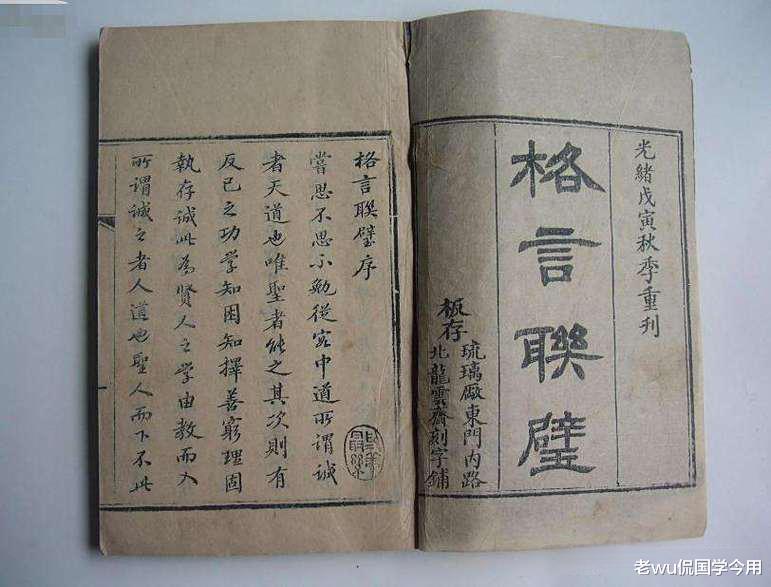 光緒戊寅秋季重刊
格言聯璧
板存
琉璃厰東門內路
北龍雲齋刻字鋪
格言聯璧序
嘗思不思不勉從容中道所謂誠
者天道也唯聖者能之其次則有
反己之功學知困知擇善窮理固
執存誠此為賢人之學由教而入
所謂誠之者人道也聖人而下不此
老wu侃国学今用